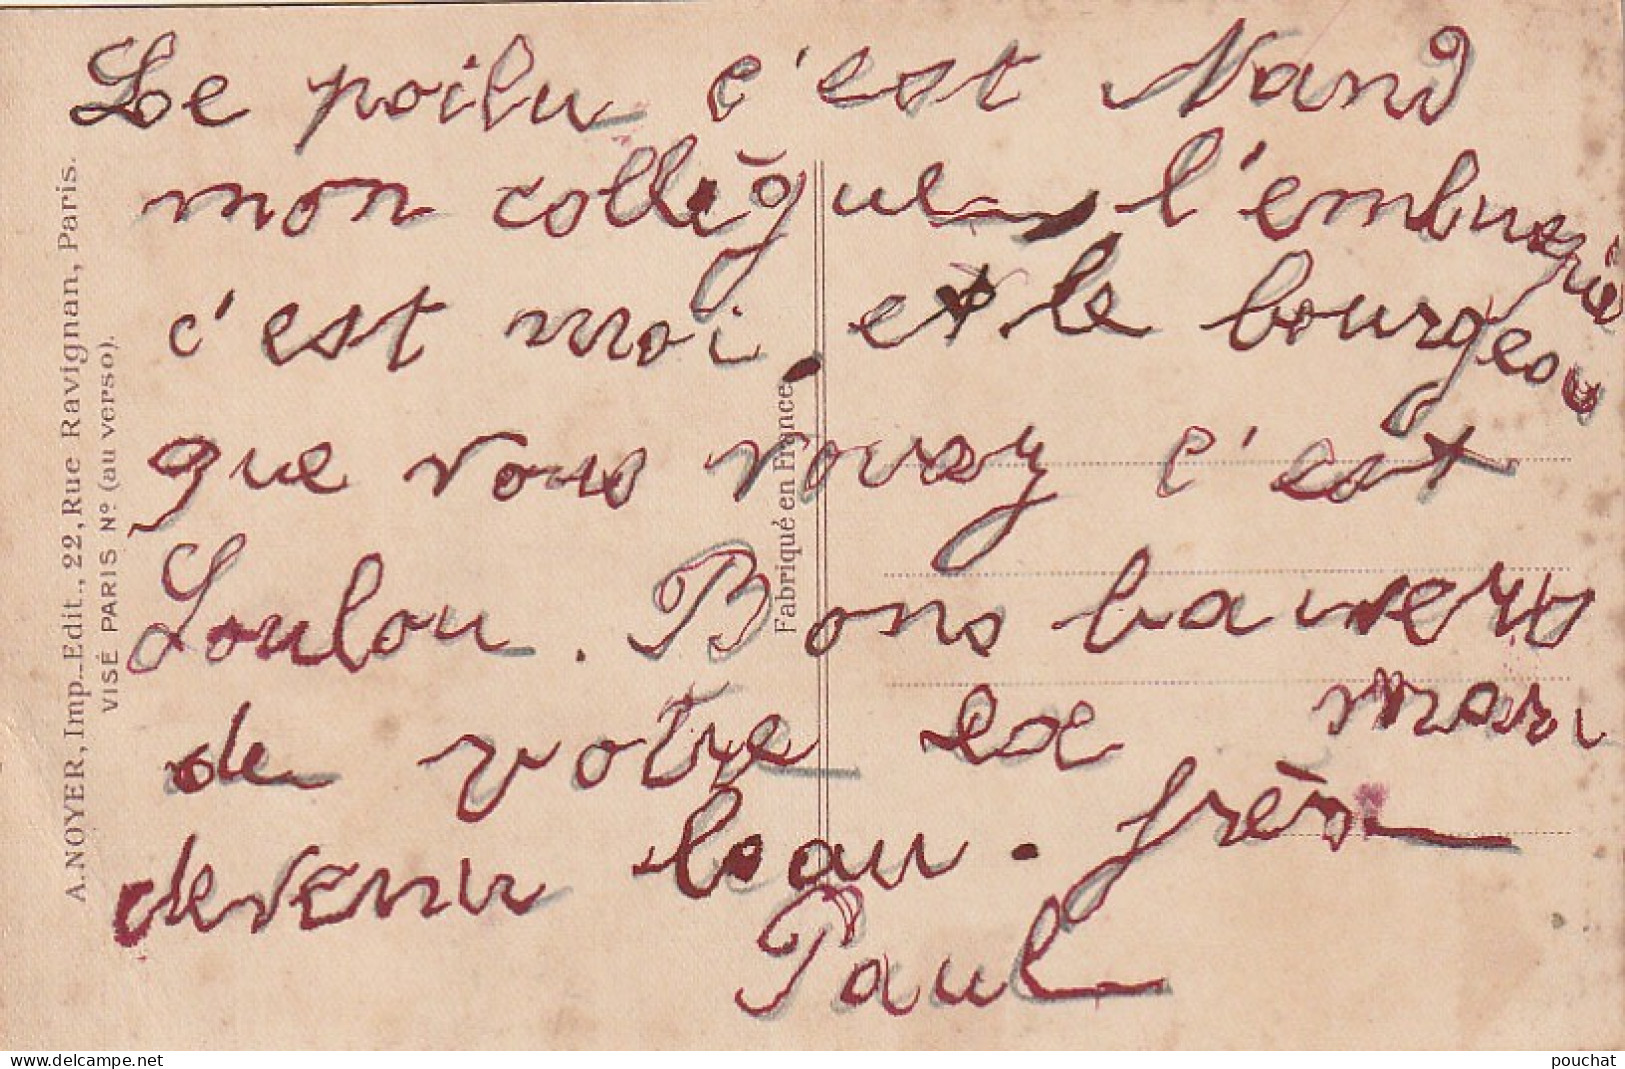 Le poilu c'est Nand
mon collègue, l'embusqué
c'est moi. et le bourgeou
que vous voyez c'est
Loulou. Bons baisers
de votre ex mari
devenu beau. frère
Paul
A. NOYER, Imp.-Edit., 22, Rue Ravignan, Paris.
VISÉ PARIS Nº (au verso).
Fabriqué en France
delcampe.net
pouchat